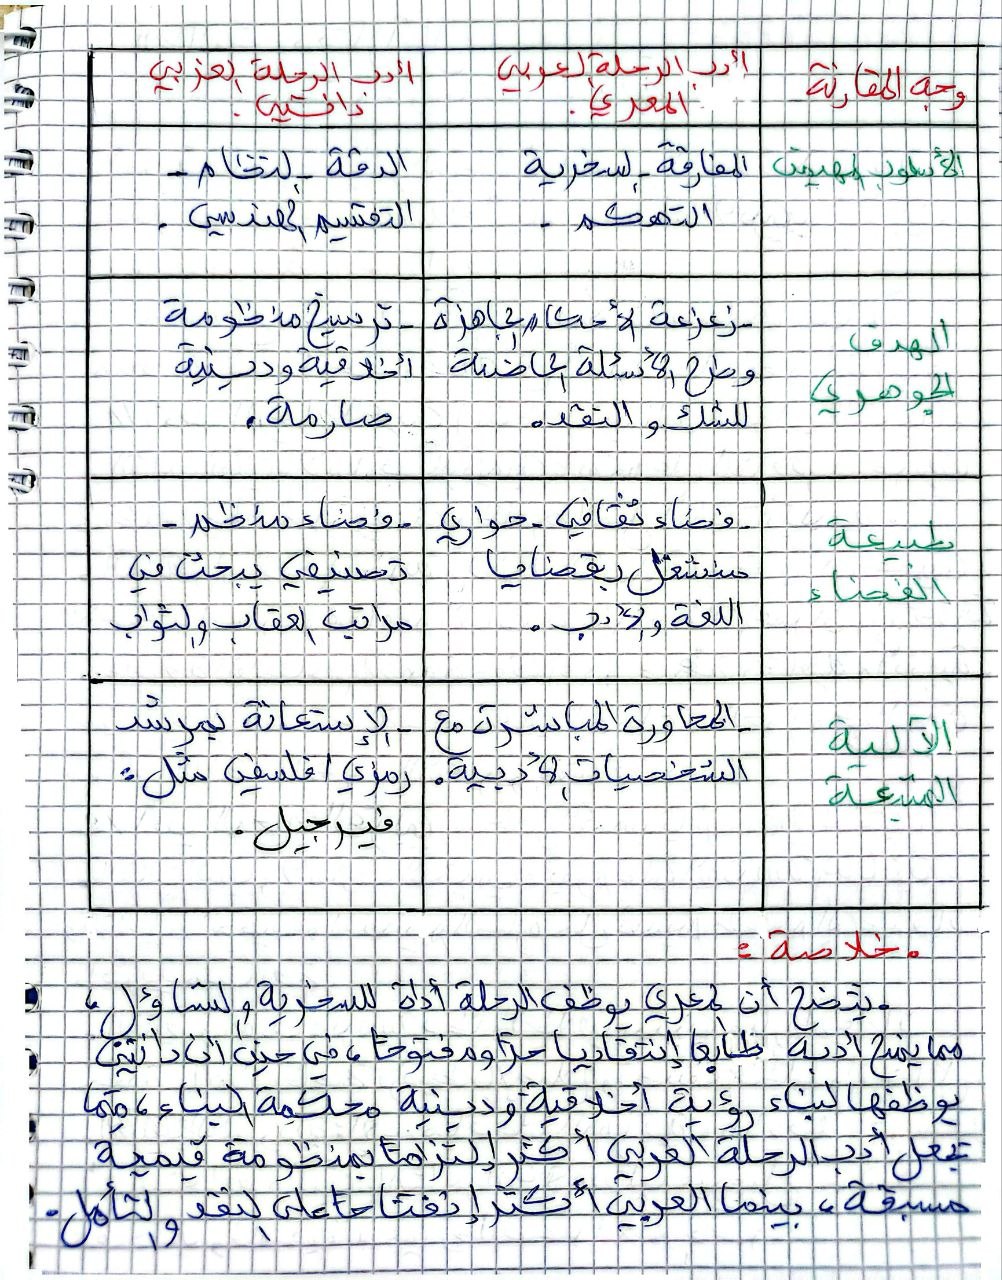 وجه المقارنة
أدب الرحلة العربي
المعري.
أدب الرحلة الغربي
دانتي.
الأسلوب المهيمن
المفارقة - السخرية
التهكم -
الدقة - النظام -
التقسيم الهندسي.
الهدف
الجوهري
- زعزعة الأحكام الجاهزة
وطرح الأسئلة الحاضنة
للشك و النقد.
- ترسيخ منظومة
أخلاقية ودينية
صارمة.
طبيعة
الفضاء
- فضاء ثقافي - حواري
منشغل بقضايا
اللغة والأدب.
- فضاء منظم -
تصنيفي يبحث في
مراتب العقاب والثواب
الآلية
المتبعة
- المحاورة المباشرة مع
الشخصيات الأدبية.
- الإستعانة بمرشد
رمزي / فلسفي مثل:
فيرجيل.
. خلاصة :
. يتضح أن المعري يوظف الرحلة أداة للسخرية والتساؤل،
مما يمنح أدبه طابعا إنتقاديا حرا ومفتوحا، في حين أن دانتي
يوظفها لبناء رؤية أخلاقية ودينية محكمة البناء، مما
يجعل أدب الرحلة الغربي أكثر إلتزاما بمنظومة قيمية
مسبقة، بينما العربي أكثر إنفتاحا على النقد والتأمل.